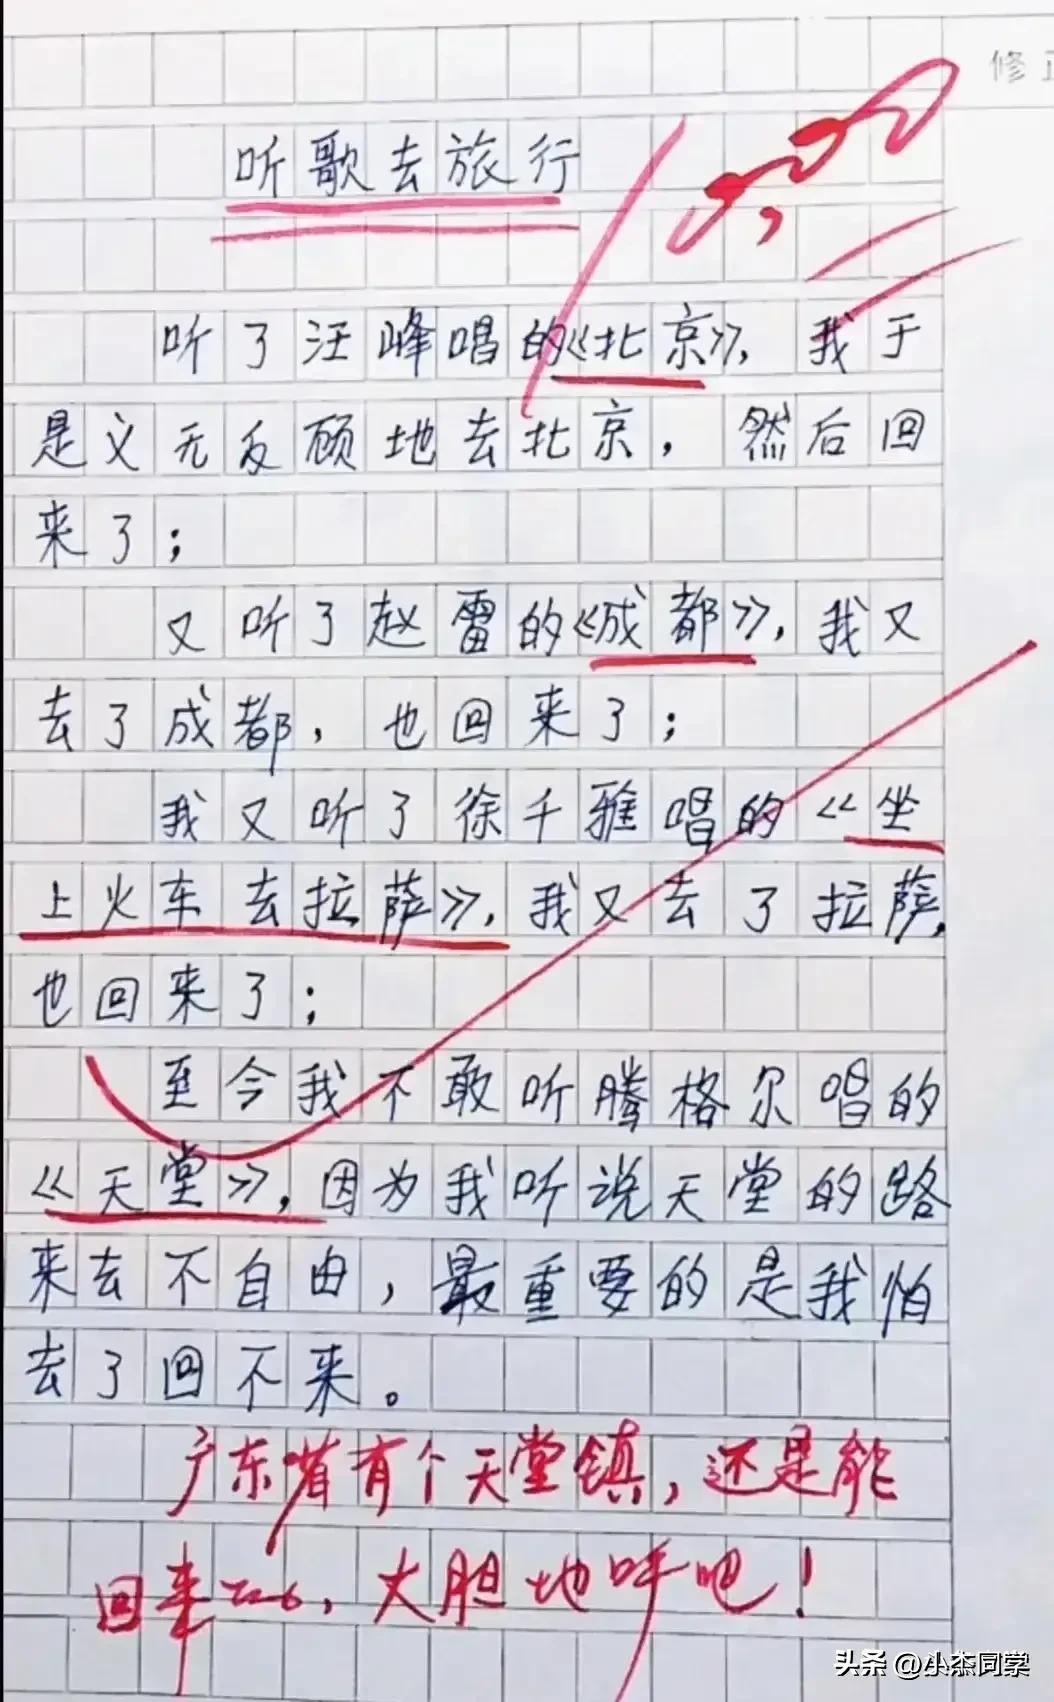 修正
听歌去旅行
听了汪峰唱的《北京》，我于
是义无反顾地去北京，然后回
来了；
又听了赵雷的《成都》，我又
去了成都，也回来了；
我又听了徐千雅唱的《坐
上火车去拉萨》，我又去了拉萨，
也回来了；
至今我不敢听腾格尔唱的
《天堂》，因为我听说天堂的路
来去不自由，最重要的是我怕
去了回不来。
广东省有个天堂镇，还是能
回来的，大胆地呼吧！
头条 @小杰同学